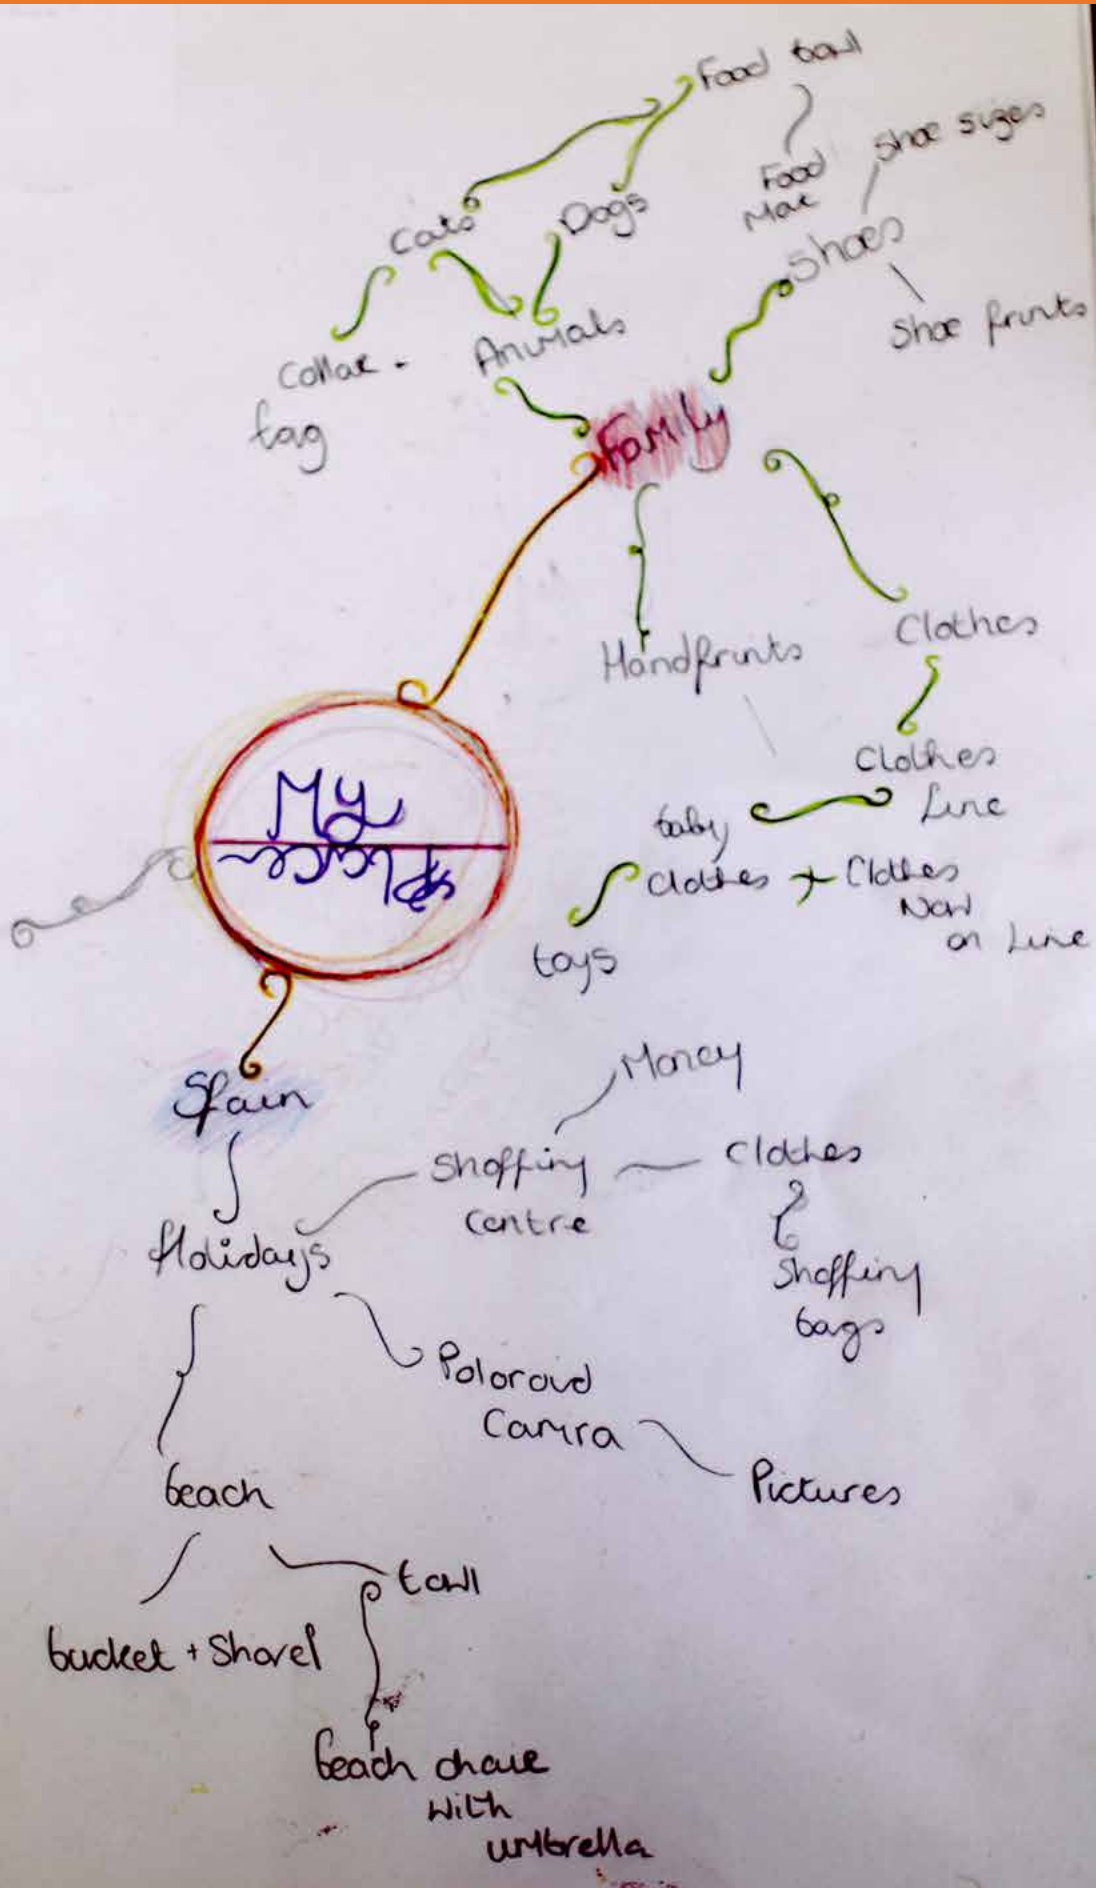 Food bowl
Food
Mat
Shoe sizes
Cats
Dogs
Shoes
Shoe prints
Animals
Collar -
tag
Family
Handprints
Clothes
Clothes
Line
baby
clothes + Clothes
Now
on Line
toys
My
Place
Spain
Money
Shopping
Centre
Clothes
Shopping
bags
Holidays
Poloroid
Camra
Pictures
beach
towl
bucket + Shovel
beach chair
with
umbrella